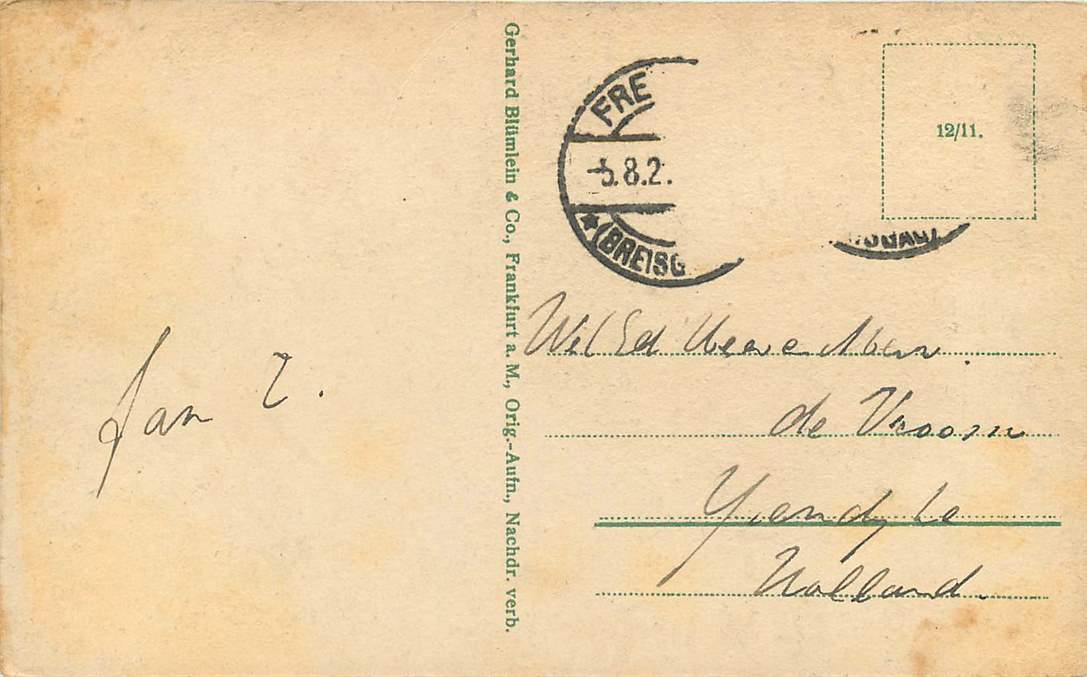 Gerhard Blümlein & Co., Frankfurt a. M., Orig.-Aufn., Nachdr. verb.
FRE
5.8.2.
(BREISG
12/11.
Jan Z.
Wel Ed Heer
de Vroom
Holland.